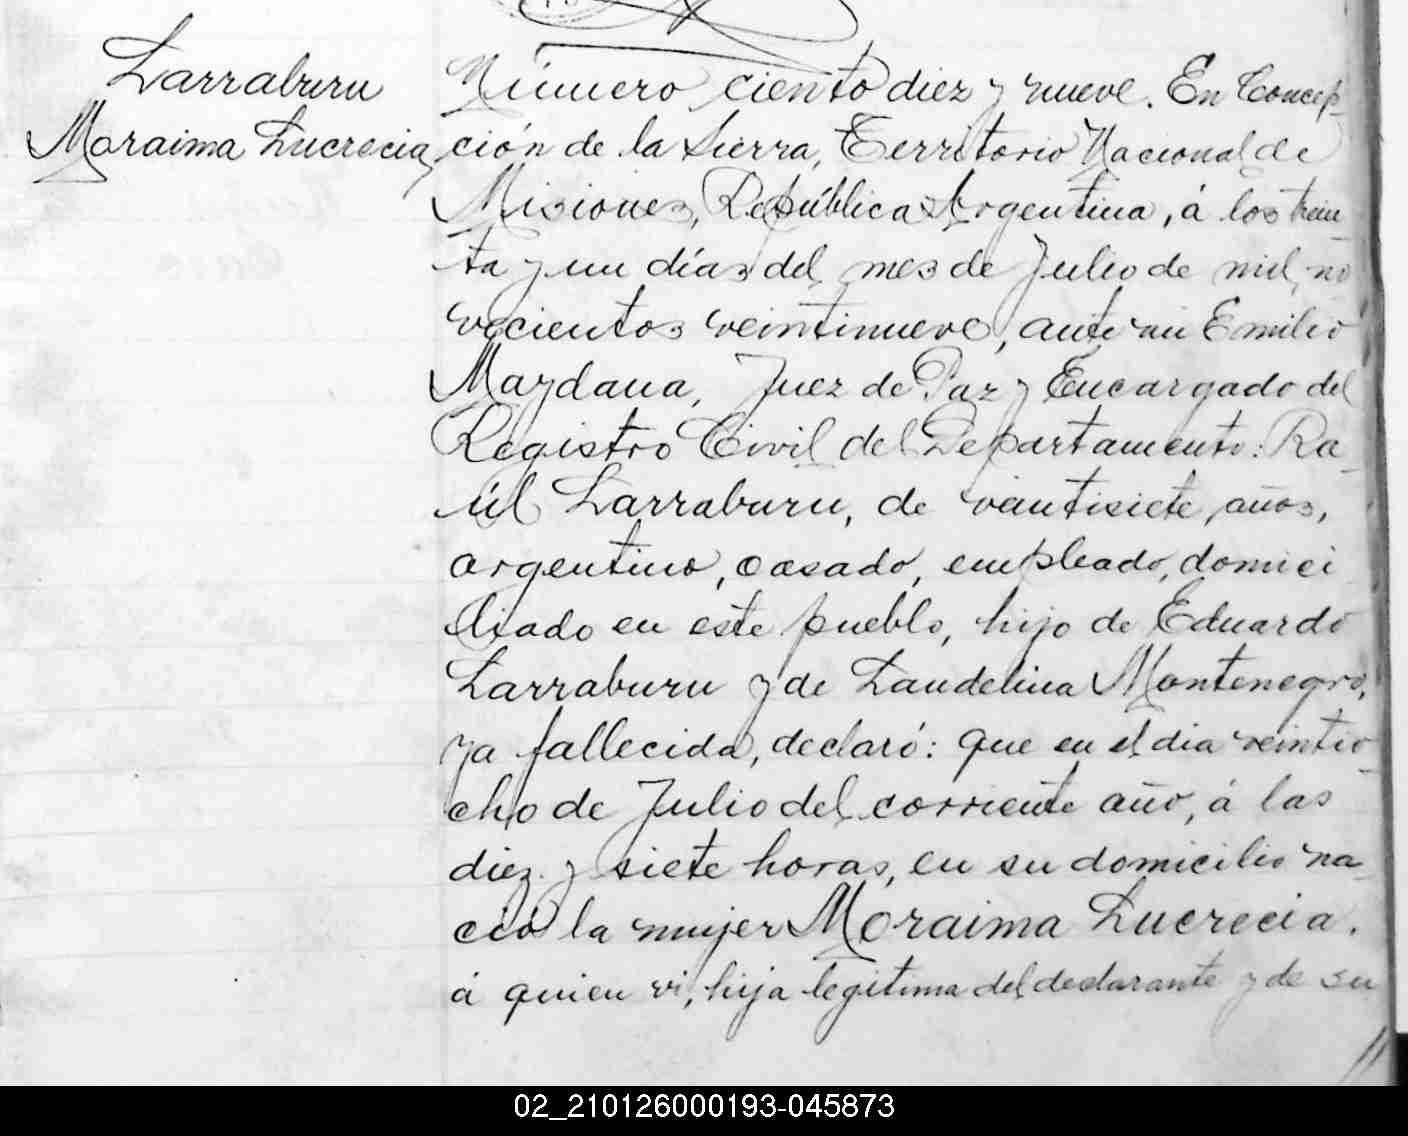 Larraburu
Moraima Lucrecia
Número ciento diez y nueve. En Concep-
ción de la Sierra, Territorio Nacional de
Misiones, República Argentina, á los trein-
ta y un días del mes de Julio de mil no
vecientos veintinueve, ante mi Emilio
Maydana, Juez de Paz y Encargado del
Registro Civil del Departamento: Ra-
úl Larraburu, de veintisiete años,
argentino, casado, empleado, domici
liado en este pueblo, hijo de Eduardo
Larraburu y de Laudelina Montenegro,
ya fallecida, declaró: que en el dia veintio-
cho de Julio del corriente año, á las
diez y siete horas, en su domicilio na-
ció la mujer Moraima Lucrecia.
á quien vi, hija legítima del declarante y de su
02_210126000193-045873